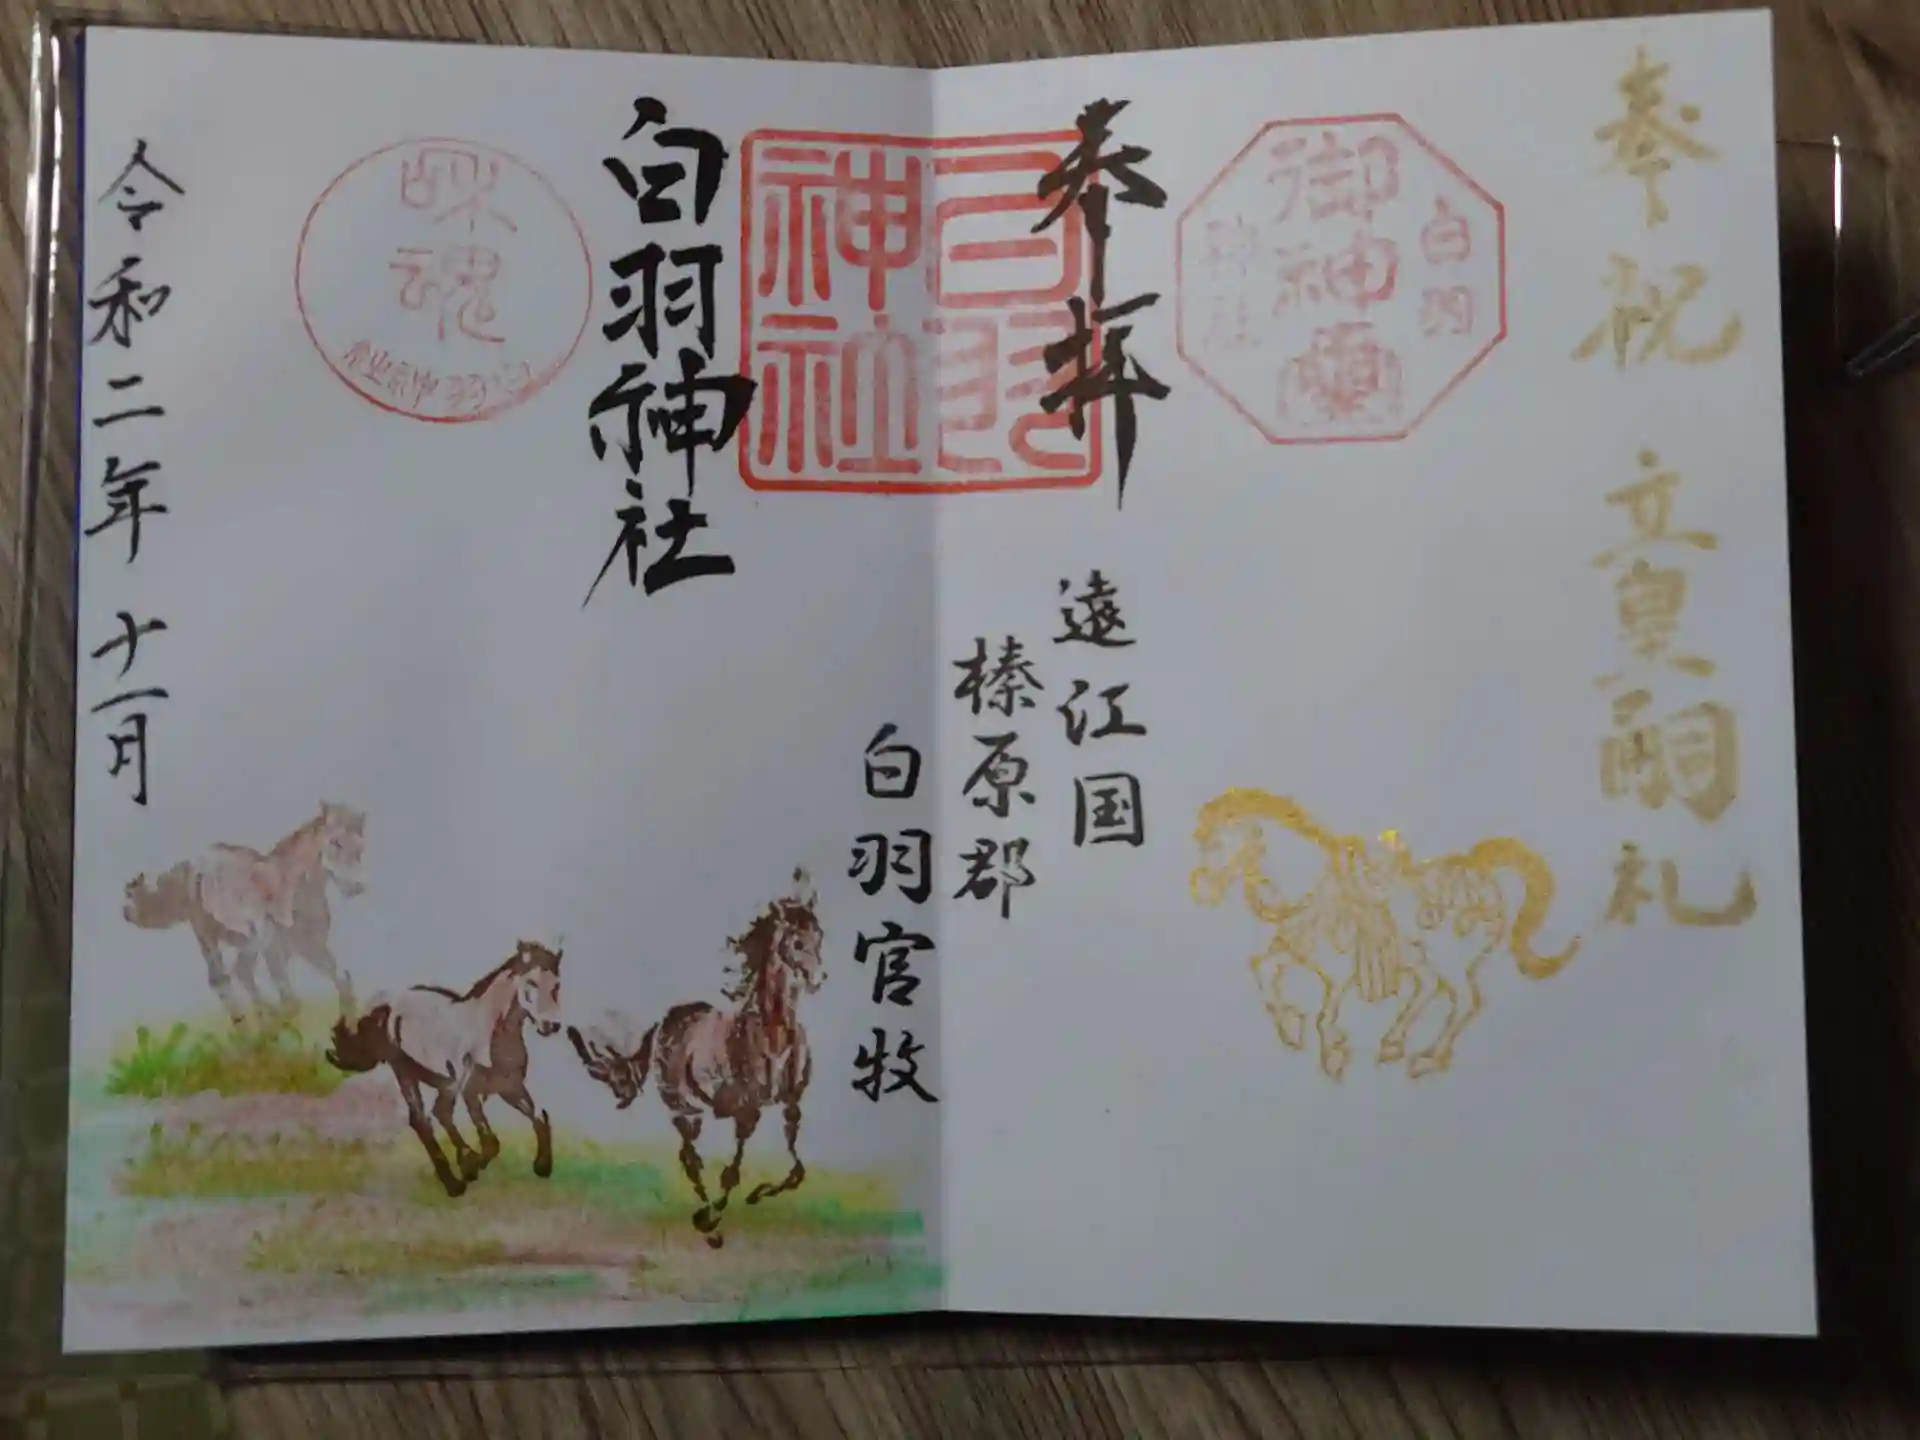 奉祝 立皇嗣礼
白羽
神社
御神
奉拝
遠江国
榛原郡
白羽官牧
白羽
神社
白羽神社
魂
白羽神社
令和二年十一月